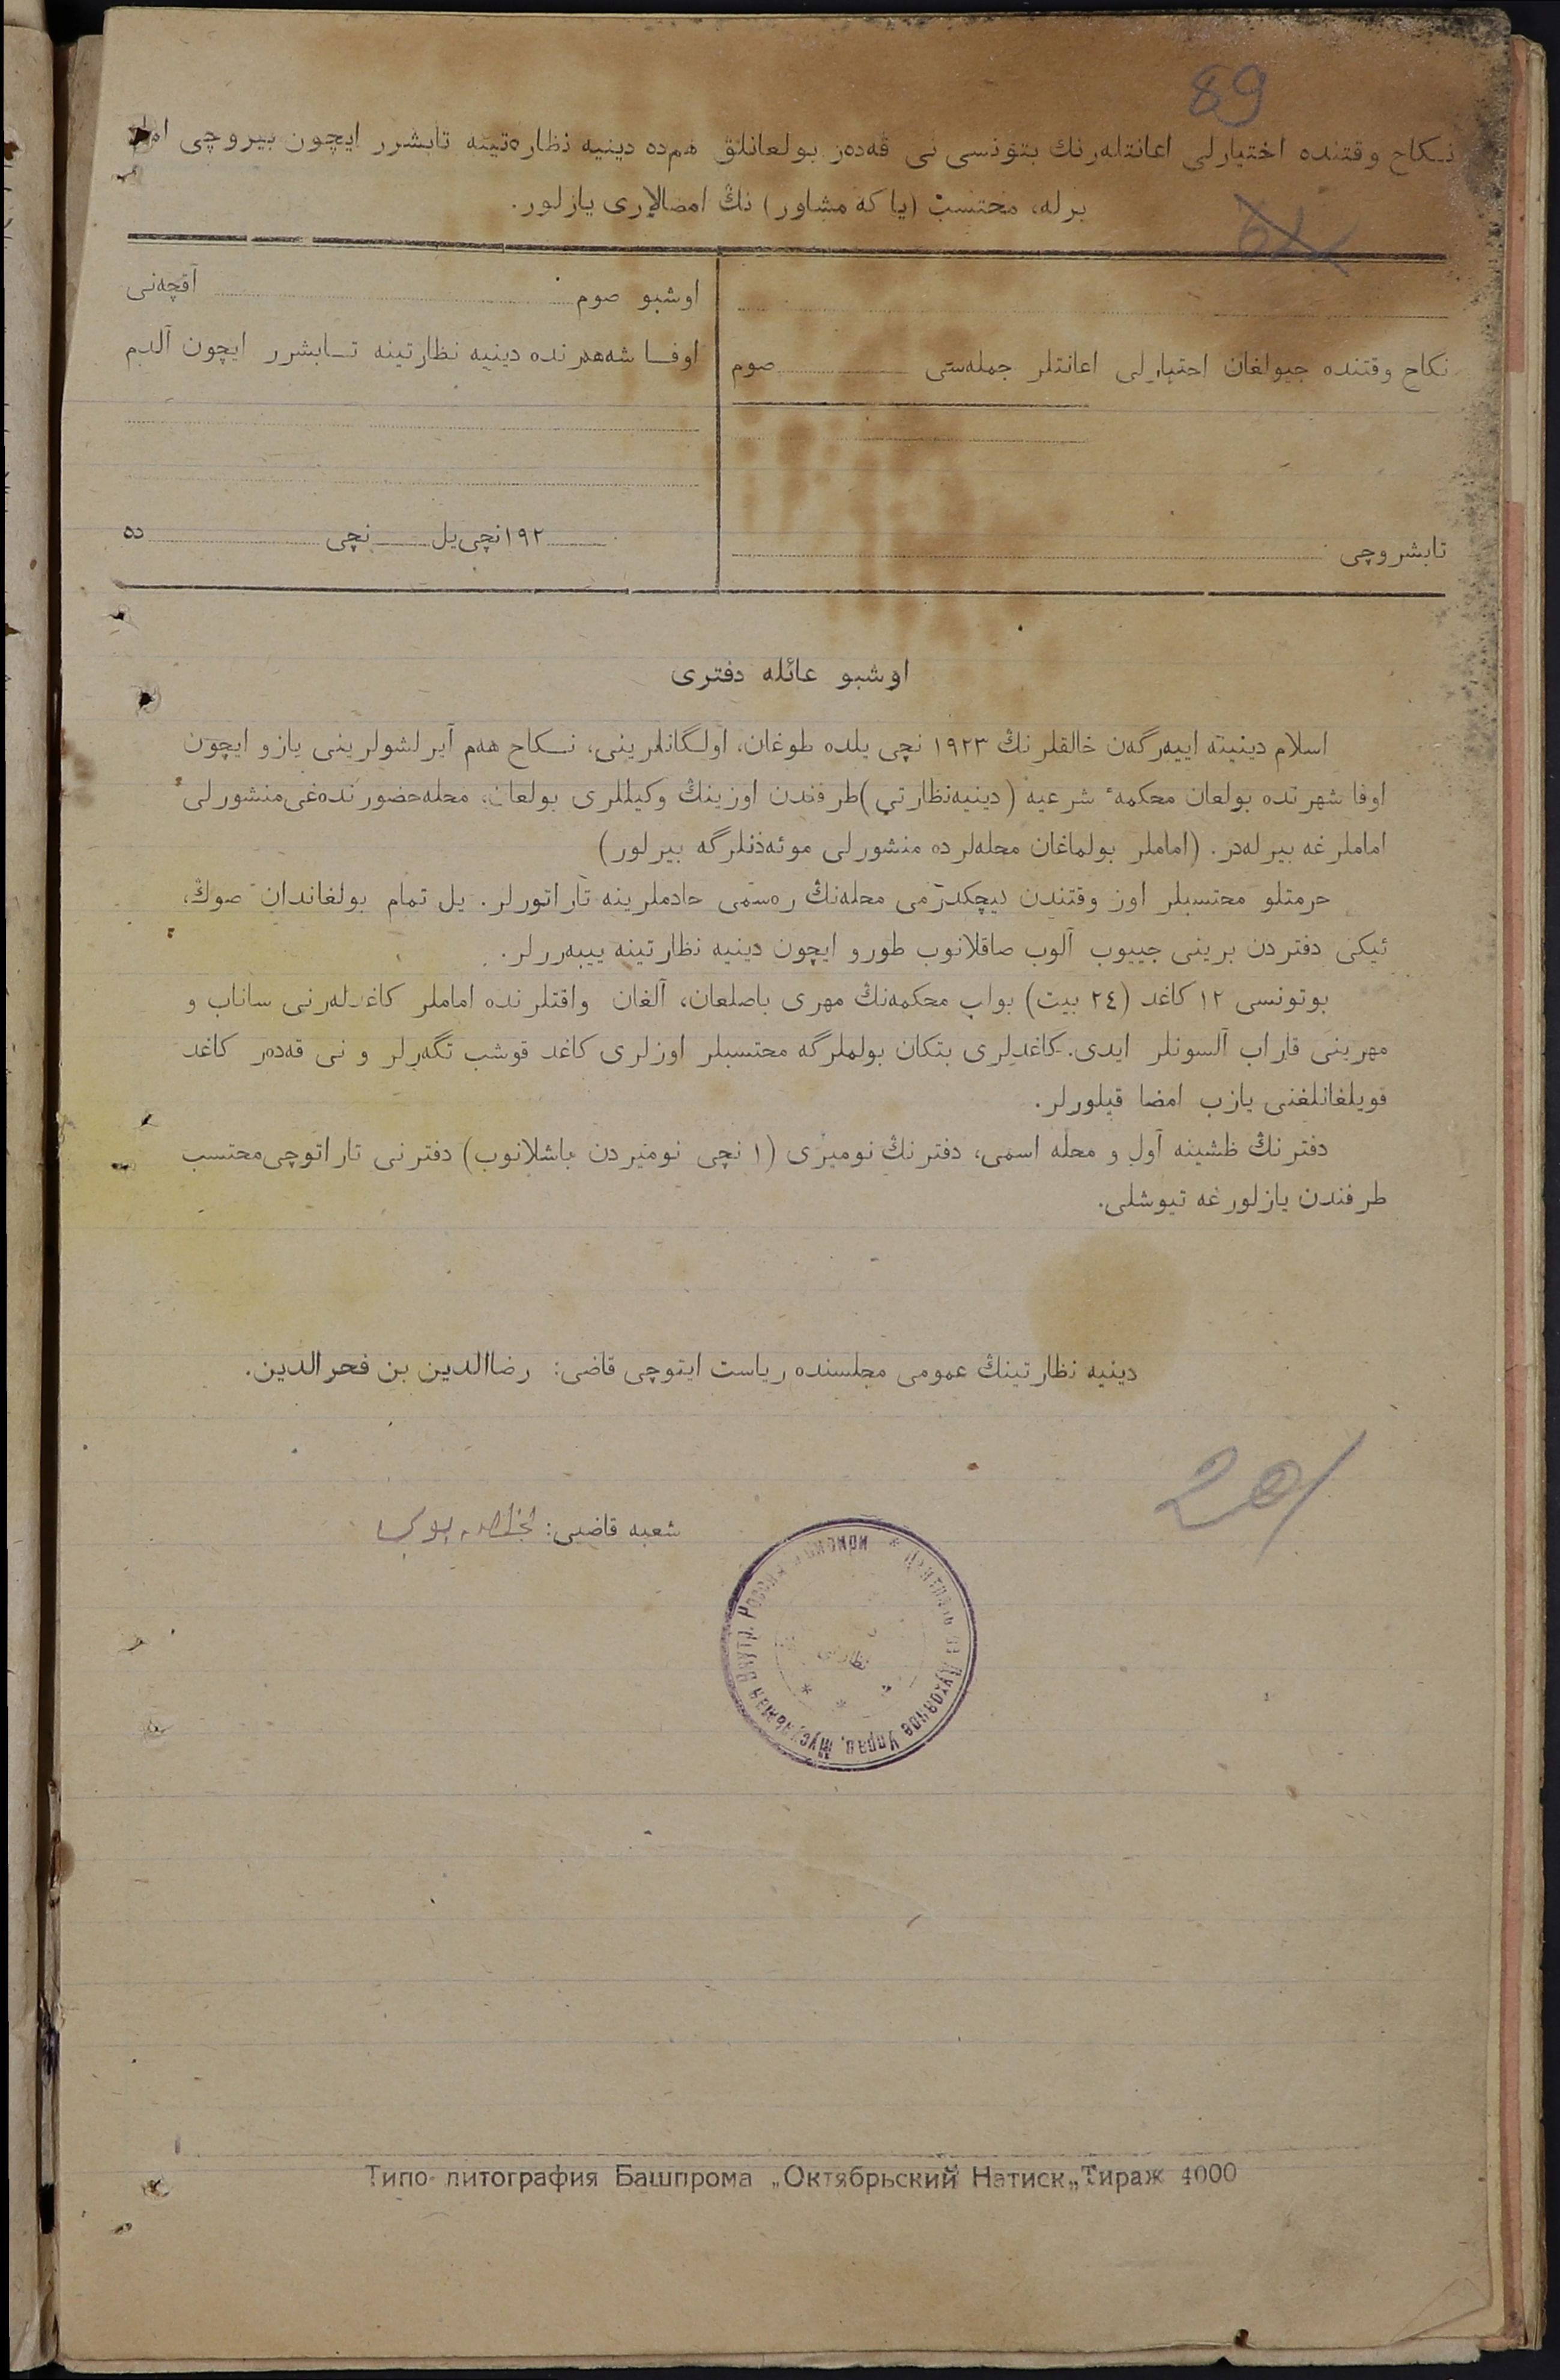 89
نـكاح وقتنده اختيارلى اعانتلەرنك بتونسى نى قەدەر بولعانلق هم‌ده دينيه نظارەتينه تابشرر ايچون بيروچى امام
برله، محتسب (ياكه مشاور) نڭ امضالارى يازلور.
نكاح وقتنده جيولغان احتيارلى اعانتلر جمله‌سى صوم
تابشروچى
اوشبو صوم آقچەنى
اوفـا شەهەرنده دينيه نظارتينه تـابشرر ايچون آلدم
١٩٢ نچى يل نچى ده
اوشبو عائله دفترى
اسلام دينيته اييەرگەن خالقلرنڭ ١٩٢٣ نچى يلده طوغان، اولـگانلرينى، نـكاح هەم آيرلشولرينى يازو ايچون
اوفا شهرنده بولعان محكمهٔ شرعيه (دينيه‌نظارتى) طرفندن اوزينڭ وكيللرى بولعان، محله‌حضورنده‌غى منشورلى
اماملرغه بيرلەدر. (اماملر بولماغان محلەلرده منشورلى موئەذنلرگه بيرلور)
حرمتلو محتسبلر اوز وقتندن ڪيچكدرمى محلەنڭ رەسمى خادملرينه تاراتورلر. يل تمام بولغاندان صوڭ،
ئيكى دفتردن برينى جييوب آلوب صاقلانوب طورو ايچون دينيه نظارتينه يبيەررلر.
بوتونسى ١٢ كاغد (٢٤ بيت) بواپ محكمەنڭ مهرى باصلعان، آلغان واقتلرنده اماملر كاغدلەرنى ساناب و
مهرينى قاراب آلسونلر ايدى. كاغدلرى بتكان بولملرگه محتسبلر اوزلرى كاغد قوشب تگەرلر و نى قەدەر كاغد
قويلغانلغنى يازب امضا قيلورلر.
دفترنڭ طشينه آول و محله اسمى، دفترنڭ نوميرى (١ نچى نوميردن باشلانوب) دفترنى تاراتوچى محتسب
طرفندن يازلورغه تيوشلى.
دينيه نظارتينڭ عمومى مجلسنده رياست ايتوچى قاضى: رضاالدين بن فخرالدين.
20/
شعبه قاضيى:
Центральное Духовное Управ. Мусульман Внутр. России
Типо-литография Башпрома „Октябрьский Натиск„ Тираж 4000